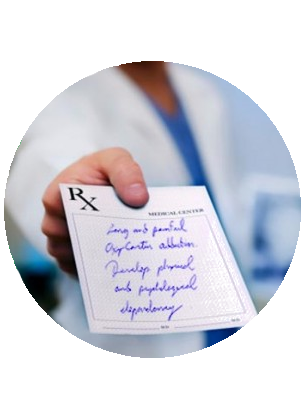 RX
MEDICAL CENTER
Long and painful
OxyContin addiction.
Develop physical
and psychological
dependency